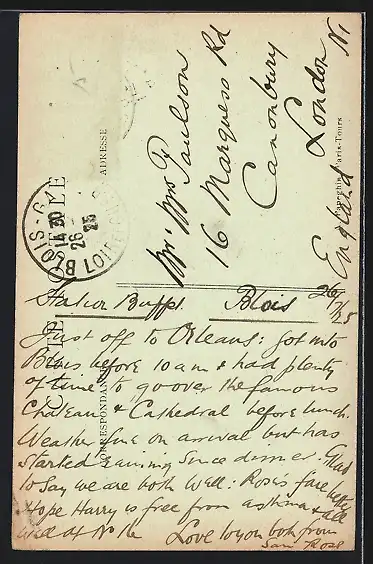 CARTE POSTALE
CORRESPONDANCE
ADRESSE
BLOIS-G
14 30
26
25
LOIR
Mr & Mrs Paulson
16 Marquess Rd
Canonbury
London N1
England
Station Buffet. Blois 26/7/25
Just off to Orleans: got into
Blois before 10 am & had plenty
of time to go over the famous
Chateau & Cathedral before lunch.
Weather fine on arrival but has
started raining since dinner. Glad
to say we are both well: Rose's face better
Hope Harry is free from asthma & all
well at No 16 Love to you both from
Sam & Rose